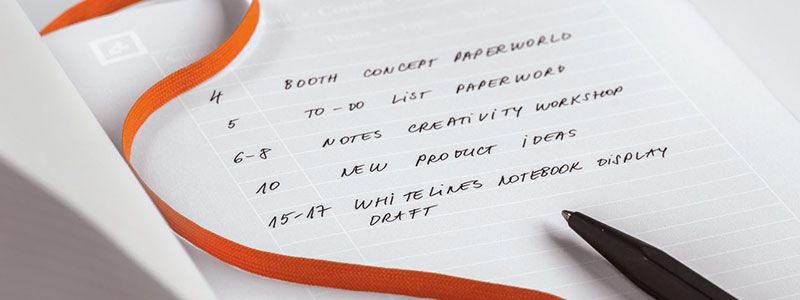 4 BOOTH CONCEPT PAPERWORLD
5 TO-DO LIST PAPERWORD
6-8 NOTES CREATIVITY WORKSHOP
10 NEW PRODUCT IDEAS
15-17 WHITELINES NOTEBOOK DISPLAY
DRAFT